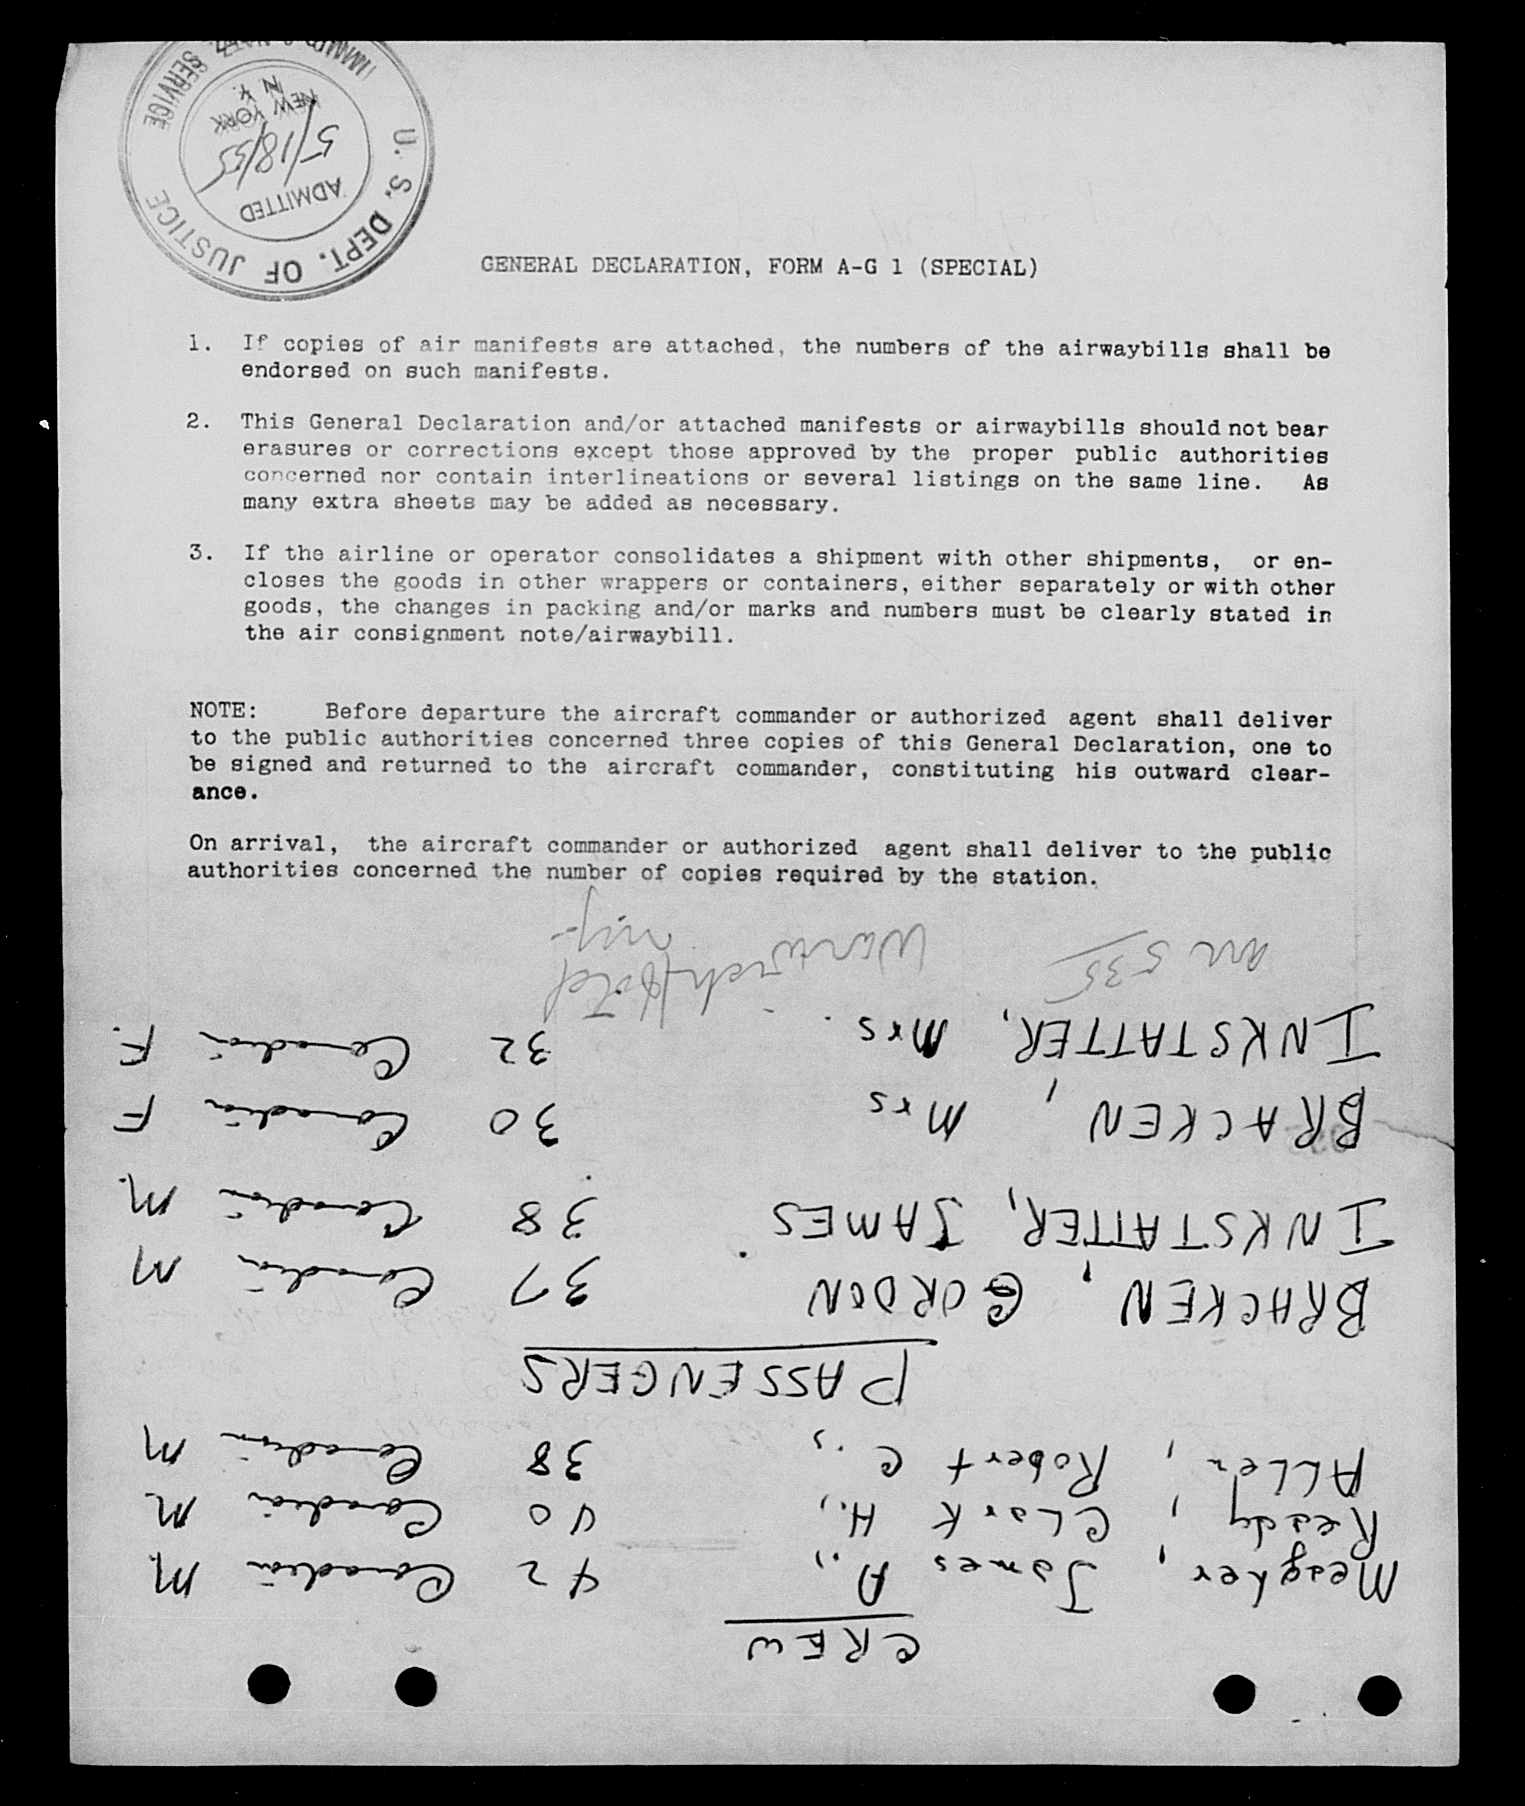 U. S. DEPT. OF JUSTICE
IMMIG. & NATZ. SERVICE
ADMITTED
5/18/55
NEW YORK
N. Y.
GENERAL DECLARATION, FORM A-G 1 (SPECIAL)
1. If copies of air manifests are attached, the numbers of the airwaybills shall be
endorsed on such manifests.
2. This General Declaration and/or attached manifests or airwaybills should not bear
erasures or corrections except those approved by the proper public authorities
concerned nor contain interlineations or several listings on the same line. As
many extra sheets may be added as necessary.
3. If the airline or operator consolidates a shipment with other shipments, or en-
closes the goods in other wrappers or containers, either separately or with other
goods, the changes in packing and/or marks and numbers must be clearly stated in
the air consignment note/airwaybill.
NOTE: Before departure the aircraft commander or authorized agent shall deliver
to the public authorities concerned three copies of this General Declaration, one to
be signed and returned to the aircraft commander, constituting his outward clear-
ance.
On arrival, the aircraft commander or authorized agent shall deliver to the public
authorities concerned the number of copies required by the station.
CREW
Meagher, James A., 42 Canadian M.
Ready, Clark H., 40 Canadian M.
ALLen, Robert C., 38 Canadian M
PASSENGERS
BRACKEN, GORDON 37 Canadian M
INKSTATTER, JAMES 38 Canadian M.
BRACKEN, Mrs 30 Canadian F
INKSTATTER, Mrs. 32 Canadian F.
arr 535 Warwick Hotel
nyc